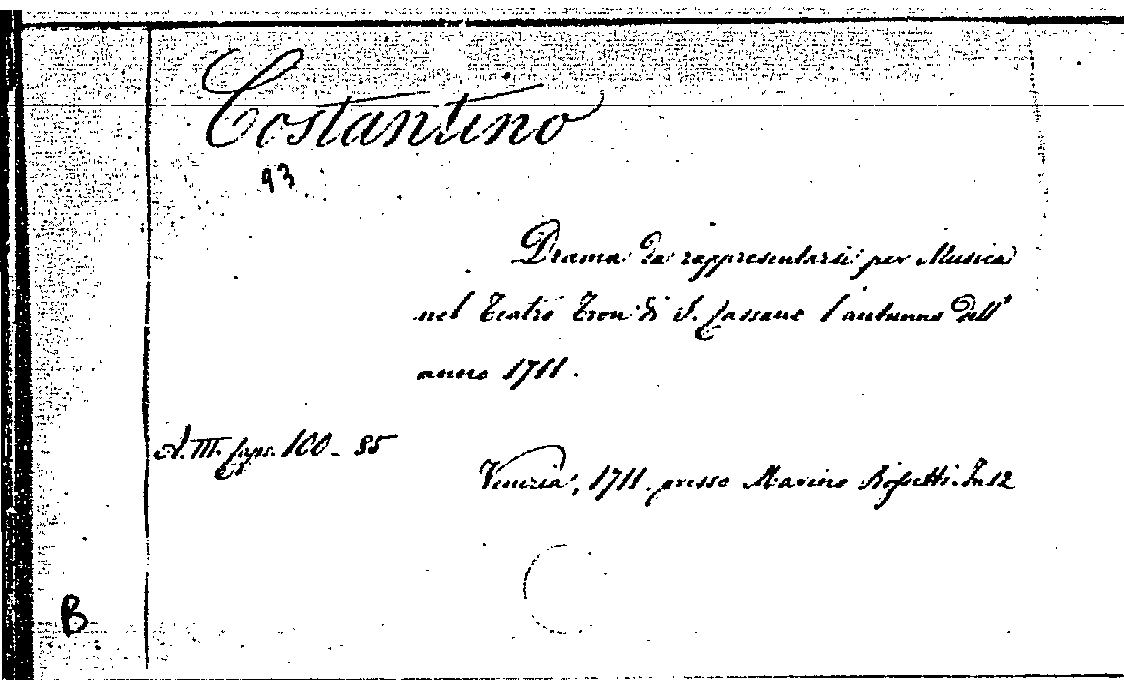 Costantino
93
Drama da rappresentarsi per Musica
nel Teatro Tron di S. Cassano l'autunno dell'
anno 1711.
A. III. Caps. 100 - 85
Venezia, 1711. presso Marino Rossetti. In 12
B